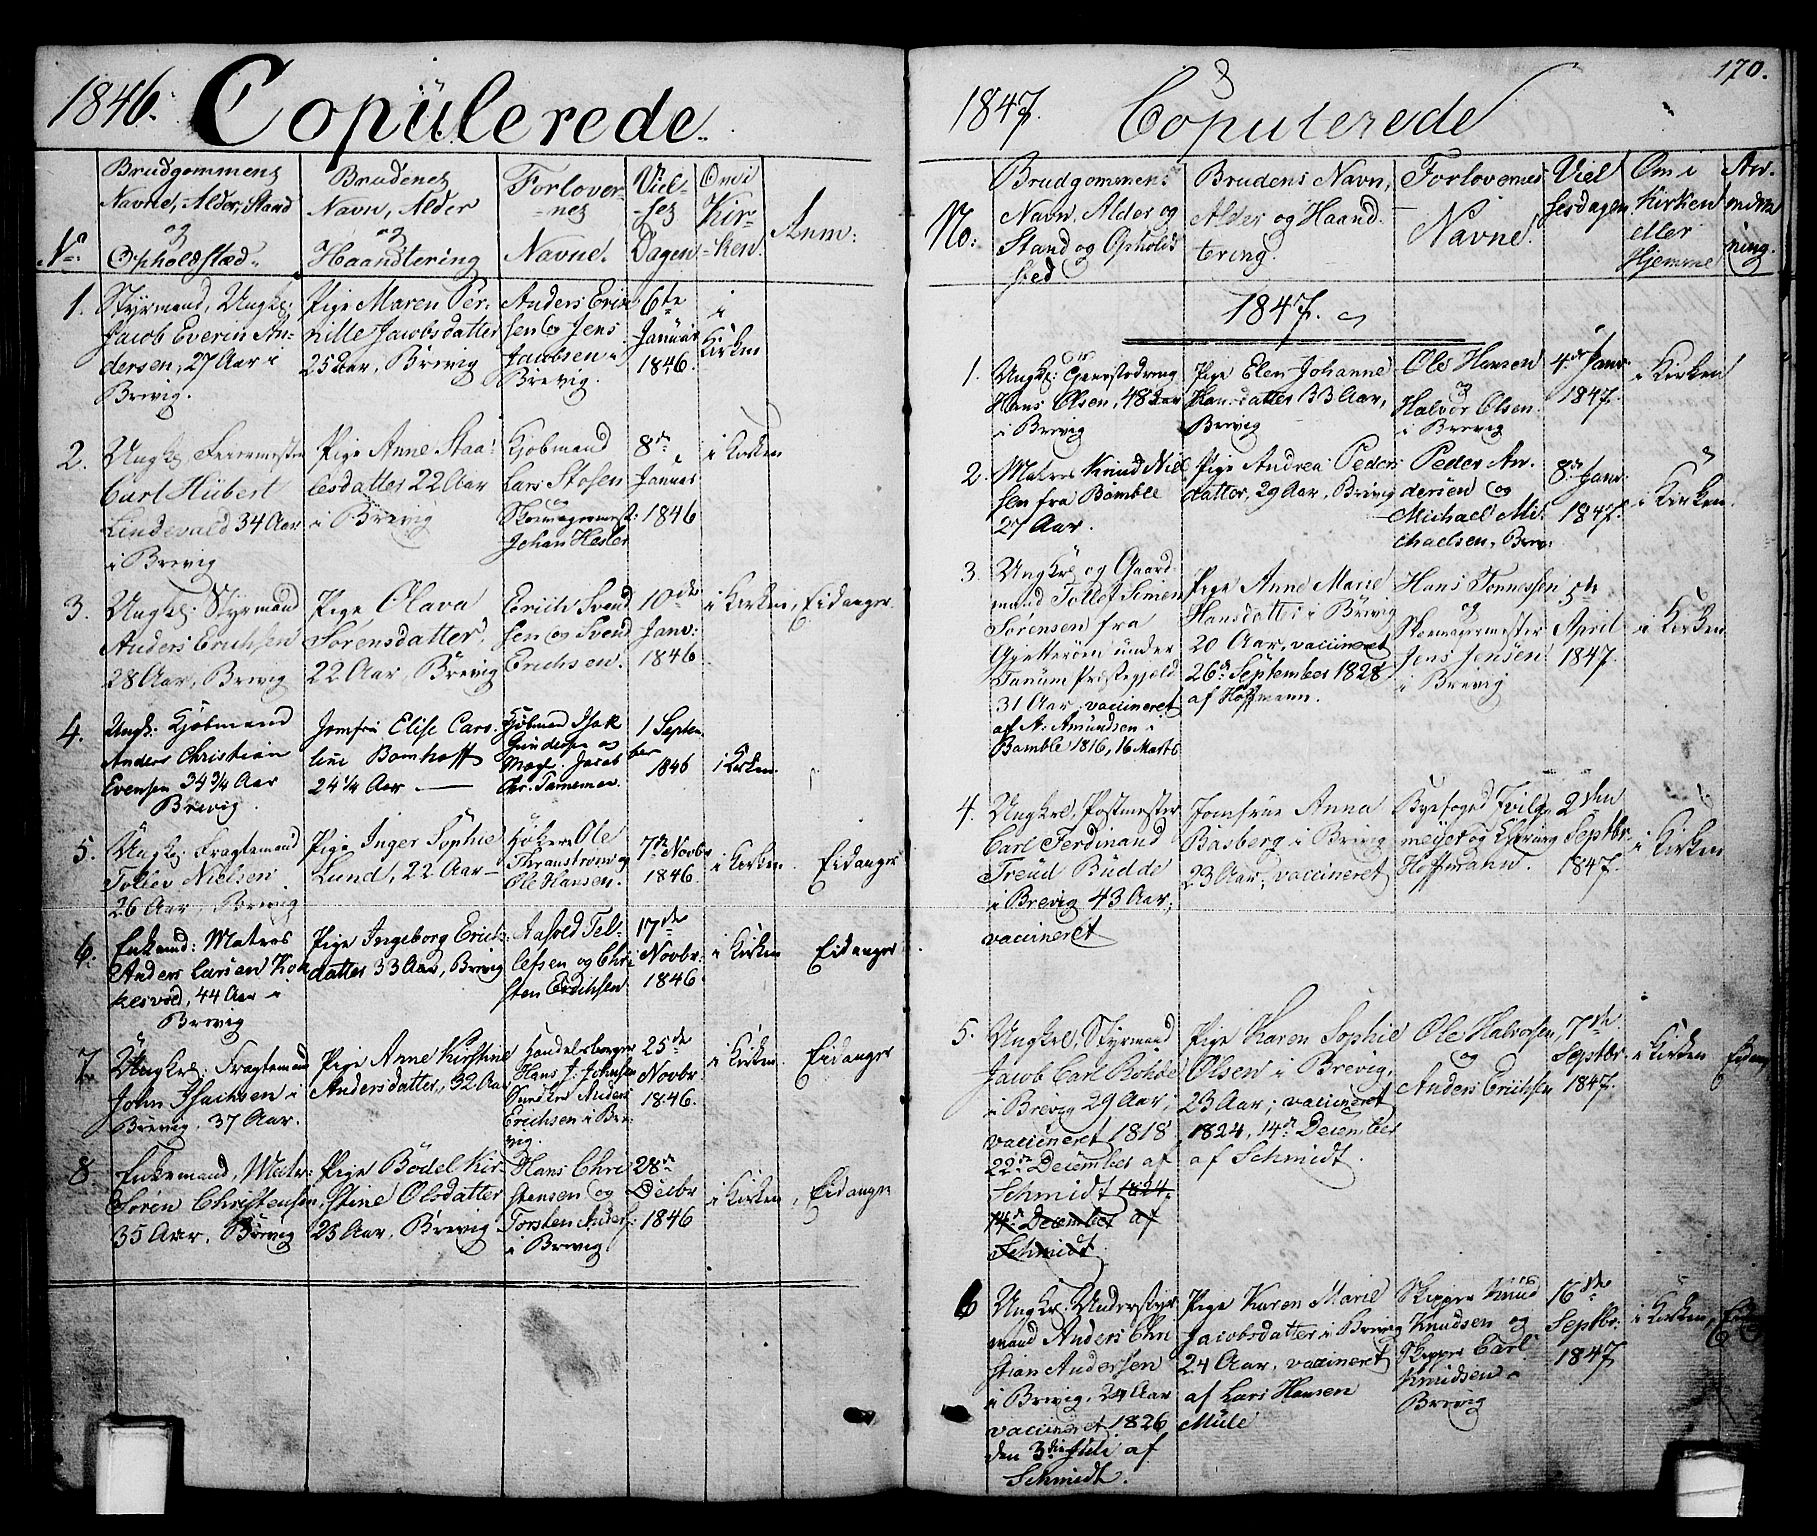 1846. Copülerede.
No.
Brudgommens
Navne, Alder, Stand
og
Opholdsstæd.
Brudenes
Navn, Alder
og
Haandtering
Forlover-
-nes
Navne.
Viel-
-ses
Dagen
Om i
Kir-
-ken.
Anm:
1.
Styrmand, Ungkl.
Jacob Everin An-
dersen, 27 Aar i
Brevig.
Pige Maren Per-
nille Jacobsdatter
25 Aar, Brevig
Anders Erik
sen og Jens
Jacobsen i
Brevig.
6te
Januar
1846.
i
Kirken
2.
Ungkl
Carl Hübert
Lindevald 34 Aar
i Brevig
Pige Anne Staa-
lesdatter 22 Aar
i Brevig
Kjøbmand
Lars Stosen
og
Skomagermest:
Johan Kesler
8de
Januar
1846
i Kirken
3.
Ungkl. Styrmand
Anders Erichsen
28 Aar, Brevig
Pige Olava
Sørensdatter,
22 Aar, Brevig
Erich Svend
sen og Svend
Erichsen.
10de
Janv:
1846
i Kirken, Eidanger
4.
Ungk: Kjøbmand
Anders Christian
Evensen 34 3/4 Aar
Brevig.
Jomfru Elise Caro-
line Bomhoff
24 1/4 Aar —
Kjøbmd Isak
Gundersen og
Jacob
Chr.
1 Septem
ber
1846
i Kirken
5.
Ungk. Fragtemand
Tollev Nielsen
26 Aar, Brevig
Pige Inger Sophie
Lund, 22 Aar —
Høker Ole
Thranstrom og
Ole Hansen.
7de Novbr
1846.
i Kirken. Eidanger
6.
Enkemd: Matros
Anders Larsen Kok
kersvold, 44 Aar i
Brevig
Pige Ingeborg Erics-
datter 33 Aar, Brevig
Aasold Tel-
lefsen og Chri
sten Erichsen
17de
Novbr.
1846.
i Kirken Eidanger
7.
Ungkrl: Fragtemand
John Isachsen i
Brevig. 37 Aar.
Pige Anne Kirstine
Andersdatter, 32 Aar
Handelsborger
Hans J. Johnsen
Anders
Erichsen i Bre-
vig.
25de
Novbr.
1846.
i Kirken. Eidanger
8
Enkemand, Matr:
Søren Christensen,
35 Aar. Brevig
Pige Bodel Kir-
stine Olsdatter
25 Aar, Brevig
Hans Chri
stensen og
Torsten Anders:
i Brevig
28de
Decbr
1846
i Kirken, Eidanger
170.
1847. Copulerede
No:
Brudgommens
Navn, Alder og
Stand og Opholds
sted
Brudens Navn,
Alder og Haand-
tering.
Forlovernes
Navne.
Viel
sesdagen
Om i
Kirken
eller
Hjemme
An-
mærk
ning.
1847.
1.
Ungkl:
Hans Olsen, 48 Aar
i Brevig
Pige Elen Johanne
Hansdatter 33 Aar,
Brevig
Ole Hansen
og
Halvor Olsen
i Brevig
4de Janr
1847.
i Kirken
2.
Matros Knud Niel
sen fra Bamble
27 Aar.
Pige Andrea Peders
datter, 29 Aar, Brevig
Peder An-
dersen og
Michael Mi-
chaelsen, Brev:
8de Janr
1847.
i Kirken.
3.
Ungkrl og Gaard-
mand Tollef Simen
Sørensen fra
Gjetterøen under
Tanum Præstegjeld
31 Aar, vaccineret
af A. Amundsen i
Bamble 1816, 16 Marts
Pige Anne Marie
Hansdatter i Brevig
20 Aar, vaccineret
26de September 1828
af Hoffmann.
Hans Tønnessen
og
Skomagermester
Jens Jensen
i Brevig
5te
April
1847.
i Kirken
4.
Ungkrl, Postmester
Carl Ferdinand
Treud Budde
i Brevig 43 Aar,
vaccineret
Jomfrue Anna
Basberg i Brevig
23 Aar, vaccineret
Byefoged
meyer og
Hoffmann.
2den
Septbr.
1847.
i Kirken
5.
Ungkrl, Styrmand
Jacob Carl Rohde
i Brevig 29 Aar,
vaccineret 1818
22de December af
Schmidt 1824.
14de December af
Schmidt.
Pige Karen Sophie
Olsen i Brevig,
23 Aar; vaccineret
1824, 14de December
af Schmidt.
Ole Halvorsen,
og
Anders Erichsen
7de
Septbr.
1847.
i Kirken Eidang
6
Ungkr. Understyr
mand Anders Chri
stian Andersen
i Brevig, 24 Aar
vaccineret 1826
den 3die Juli af
Schmidt.
Pige Karen Marie
Jacobsdatter i Brevig
24 Aar, vaccineret
af Lars Hansen
Mule
Skipper Knud
Knudsen og
Skipper Carl
Knudsen i
Brevig
16de
Septbr.
1847
i Kirken,